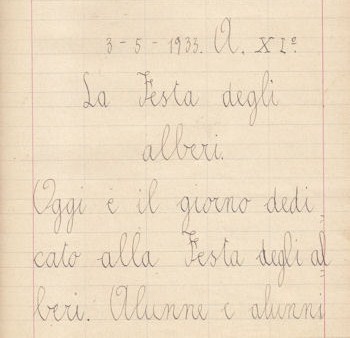 3-5-1933. A. XIº
La Festa degli
alberi.
Oggi è il giorno dedi
cato alla Festa degli al
beri. Alunne e alunni